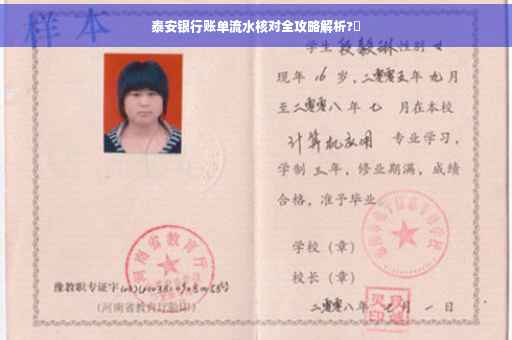 泰安银行账单流水核对全攻略解析?
样本
学生段毅琳性别女
现年16岁,二零零五年九月
至二零零八年七月在本校
计算机应用 专业学习,
学制三年,修业期满,成绩
合格,准予毕业
学校(章)
校长(章)
二零零八年 月一日
河南省教育厅
豫教职专证字
(河南省教育厅验印)